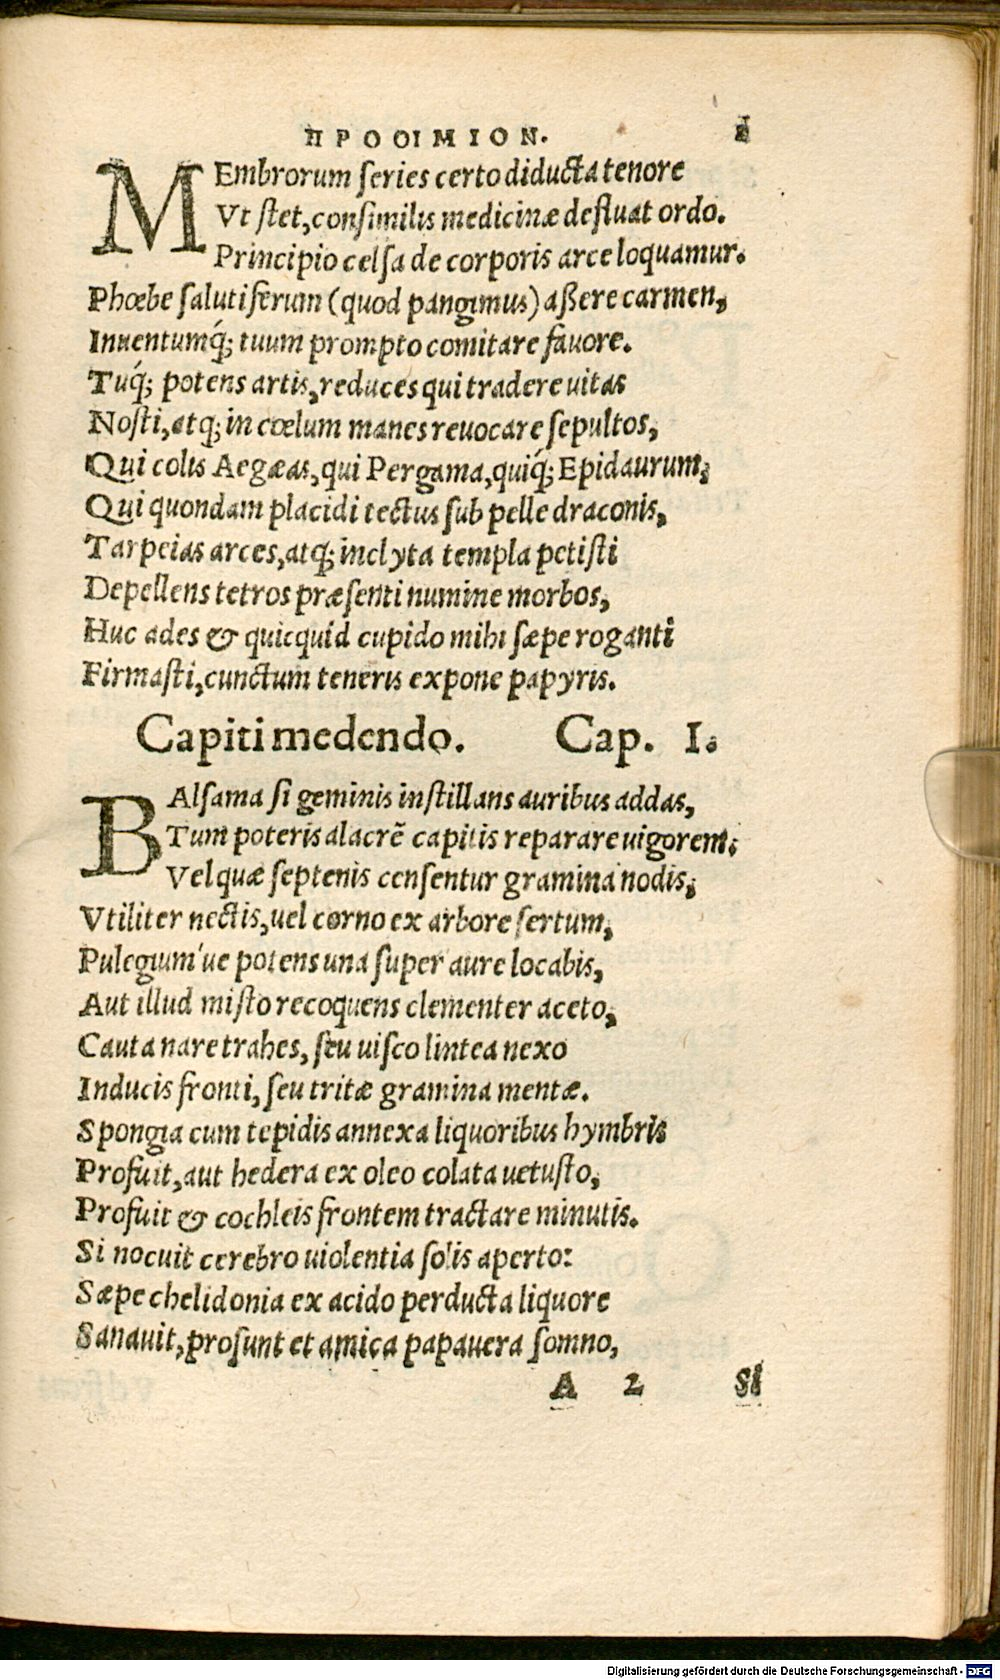 ΠΡΟΟΙΜΙΟΝ.
MEmbrorum ſeries certo diducta tenore
Vt ſtet, conſimilis medicinæ defluat ordo.
Principio celſa de corporis arce loquamur.
Phœbe ſalutiferum (quod pangimus) aßere carmen,
Inuentumq́; tuum prompto comitare fauore.
Tuq́; potens artis, reduces qui tradere uitas
Noſti, atq; in cœlum manes reuocare ſepultos,
Qui colis Aegæas, qui Pergama, quiq́; Epidaurum,
Qui quondam placidi tectus ſub pelle draconis,
Tarpeias arces, atq; inclyta templa petiſti
Depellens tetros præſenti numine morbos,
Huc ades & quicquid cupido mihi ſæpe roganti
Firmaſti, cunctum teneris expone papyris.
Capiti medendo. Cap. I.
BAlſama ſi geminis inſtillans auribus addas,
Tum poteris alacrẽ capitis reparare uigorem,
Vel quæ ſeptenis cenſentur gramina nodis,
Vtiliter nectis, uel corno ex arbore ſertum,
Pulegium'ue potens una ſuper aure locabis,
Aut illud miſto recoquens clementer aceto,
Cauta nare trahes, ſeu uiſco lintea nexo
Inducis fronti, ſeu tritæ gramina mentæ.
Spongia cum tepidis annexa liquoribus hymbris
Profuit, aut hedera ex oleo colata uetuſto,
Profuit & cochleis frontem tractare minutis.
Si nocuit cerebro uiolentia ſolis aperto:
Sæpe chelidonia ex acido perducta liquore
Sanauit, proſunt et amica papauera ſomno,
A 2 Si
Digitalisierung gefördert durch die Deutsche Forschungsgemeinschaft - DFG